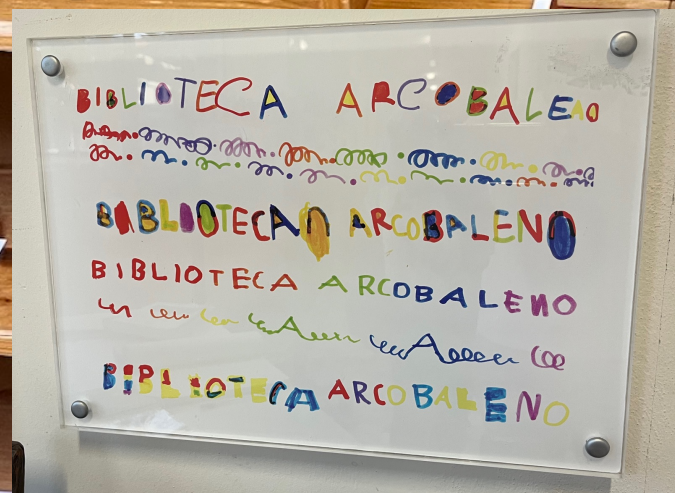 BIBLIOTECA ARCOBALENO
BIBLIOTECA ARCOBALENO
BIBLIOTECA ARCOBALENO
BIBLIOTECA ARCOBALENO